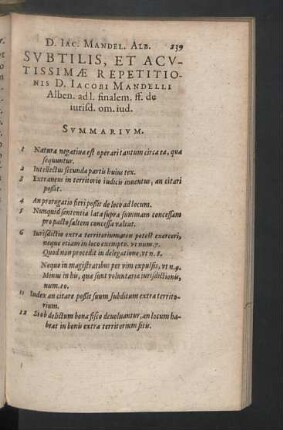 D. IAC. MANDEL. ALB. 239
SVBTILIS, ET ACV-
TISSIMÆ REPETITIO-
NIS D. IACOBI MANDELLI
Alben. ad l. finalem. ff. de
iurisd. om. iud.
SVMMARIVM.
1 Natura negatiua est operari tantum circa ea, quæ
sequuntur.
2 Intellectus secunda partis huius tex.
3 Extraneus in territorio iudicis inuentus, an citari
possit.
4 An prorogatio fieri possit de loco ad locum.
5 Nunquid sententia lata supra summam concessam
pro parte saltem concessa valeat.
6 Iurisdictio extra territorium an potest exerceri,
neque etiam in loco exempto. vt num. 7.
Quod non procedit in delegatione, vt n. 8.
Neque in magistratibus per vim expulsis, vt n. 9.
Monu in his, quæ sunt voluntaria iurisdictionis,
num. 10.
11 Iudex an citare possit suum subditum extra territo-
rium.
12 Si ob delictum bona fisco deuoluantur, an locum ha-
beat in bonis extra territorium sitis.